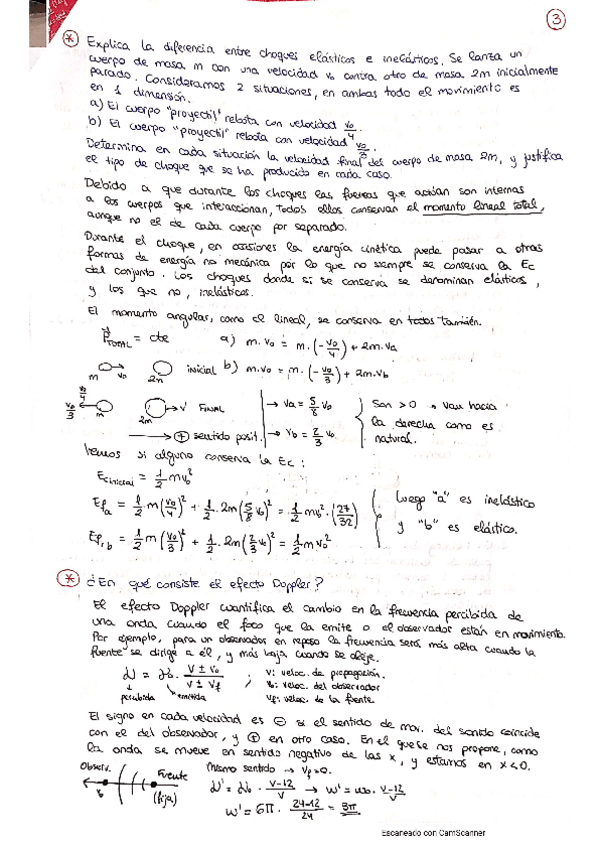 3
* Explica la diferencia entre choques elásticos e inelásticos. Se lanza un
cuerpo de masa m con una velocidad v₀ contra otro de masa 2m inicialmente
parado. Consideramos 2 situaciones, en ambas todo el movimiento es
en 1 dimensión.
a) El cuerpo "proyectil" rebota con velocidad v₀/4.
b) El cuerpo "proyectil" rebota con velocidad
Determina en cada situación la velocidad final del cuerpo de masa 2m, y justifica
el tipo de choque que se ha producido en cada caso.
Debido a que durante los choques las fuerzas que actúan son internas
a los cuerpos que interaccionan, todos ellos conservan el momento lineal total,
aunque no el de cada cuerpo por separado.
Durante el choque, en ocasiones la energía cinética puede pasar a otras
formas de energía no mecánica por lo que no siempre se conserva la Ec
del conjunto. Los choques donde sí se conserva se denominan elásticos,
y los que no, inelásticos.
El momento angular, como el lineal, se conserva en todos también.
P TOTAL = cte a) m·v₀ = m·(-v₀/4) + 2m·va
m v₀ 2m inicial b) m·v₀ = m·(-v₀/3) + 2m·vb
v₀/4
v₀/3 m 2m v FINAL → va = 5/8 v₀ Son > 0 → van hacia
la derecha como es
→ + sentido posit. → vb = 2/3 v₀ natural.
Veamos si alguno conserva la Ec:
Ec inicial = 1/2 mv₀²
Ef a = 1/2 m(v₀/4)² + 1/2·2m(5/8 v₀)² = 1/2 mv₀²·(27/32) Luego "a" es inelástico
Ef, b = 1/2 m(v₀/3)² + 1/2·2m(2/3 v₀)² = 1/2 mv₀² y "b" es elástico.
* ¿En qué consiste el efecto Doppler?
El efecto Doppler cuantifica el cambio en la frecuencia percibida de
una onda cuando el foco que la emite o el observador están en movimiento.
Por ejemplo, para un observador en reposo la frecuencia será más alta cuando la
fuente se dirige a él, y más baja cuando se aleje.
ν' = ν₀· (v ± v₀)/(v ± vf) ; v: veloc. de propagación.
v₀: veloc. del observador
percibida emitida vf: veloc. de la fuente.
El signo en cada velocidad es - si el sentido de mov. del sonido coincide
con el del observador, y + en otro caso. En el que se nos propone, como
la onda se mueve en sentido negativo de las x, y estamos en x<0.
Observ. Fuente (fija) Mismo sentido → vf = 0.
ν' = ν₀· (v-12)/v → w' = w₀· (v-12)/v
w' = 6π · (24-12)/24 = 3π
Escaneado con CamScanner